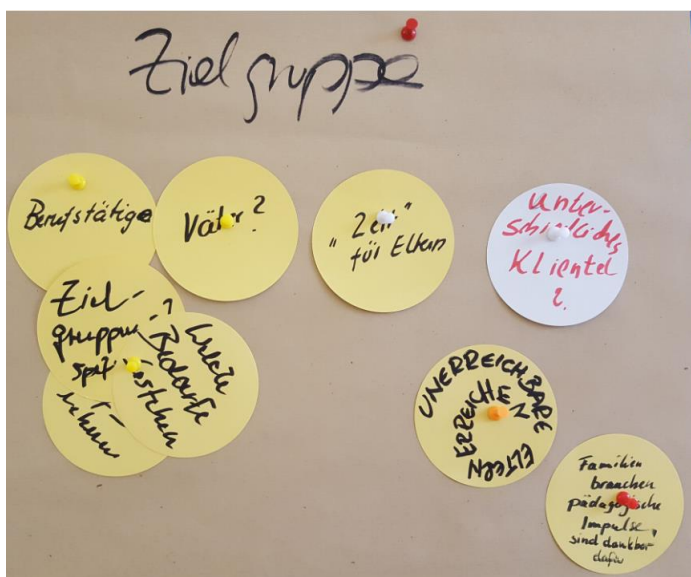 Zielgruppe
Berufstätige
Väter?
"Zeit"
für Eltern
Unter-
schiedliches
Klientel
?
Ziel-
gruppen
spez
Welche
Bedarfe
bestehen
?
UNERREICHBARE
ELTERN
ERREICHEN
Familien
brauchen
pädagogische
Impulse,
sind dankbar
dafür